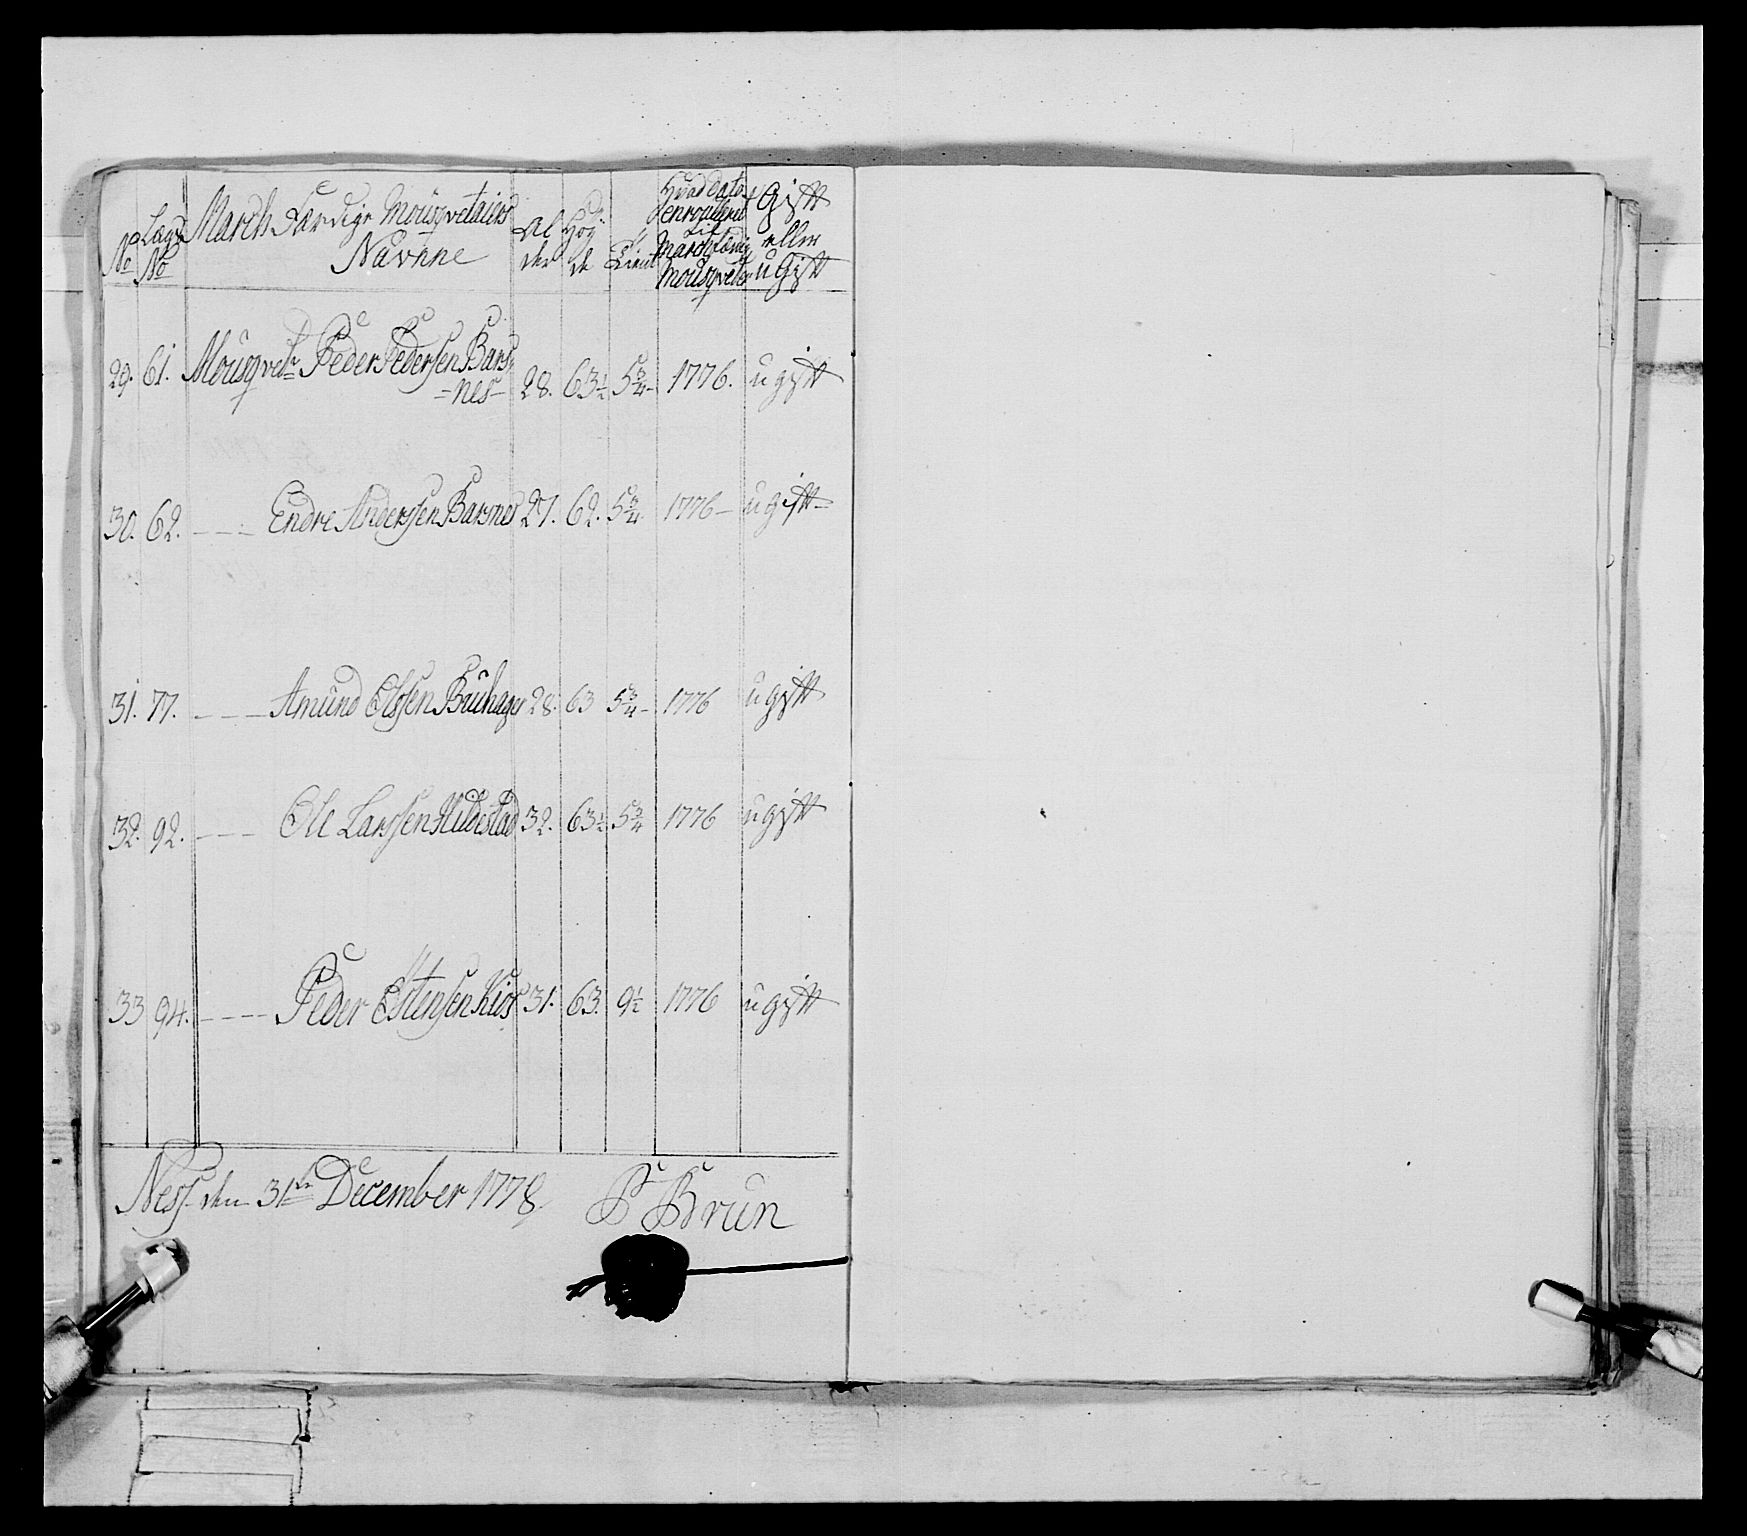 No
Lægd No
March Færdige Mousqvetairers
Navnne
Al
der
Høy
de
Tient
Hvad Dato
enroulleret
til
Marchfærdig
Mousqveter
Gift
eller
u Gift
29. 61. Mousqvetr Peder Pedersen Bars
-nes- 28. 63½ 5¾- 1776. u gift
30. 62. - - - Endre Anderssen Barsnes 27. 62. 5¾ 1776- u gift-
31. 77. - - - Amund Olssen Buuhager 28. 63 5¾- 1776 u gift
32. 92. - - - Ole Larssen Hildestad 32. 63½ 5¾ 1776 u gift
33 94. - - - - Peder Östensen Kios 31. 63. 9½ 1776 u gift
Ness den 31te December 1778
P Brun